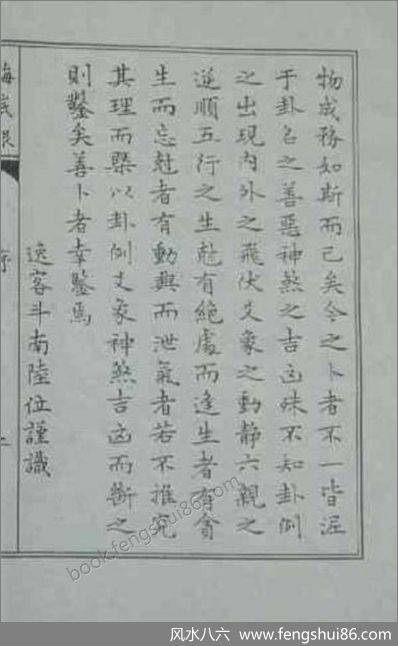 物成務如斯而已矣今之卜者不一皆泥
于卦名之善惡神煞之吉凶殊不知卦例
之出現內外之飛伏爻象之動静六親之
逆順五行之生尅有絕處而逢生者有貪
生而忘尅者有動興而泄氣者若不推究
其理而槩以卦例爻象神煞吉凶而斷之
則鑿矣善卜者幸鑒焉
逸客斗南陸位謹識
海底眼
序
book.fengshui86.com
风水八六 www.fengshui86.com